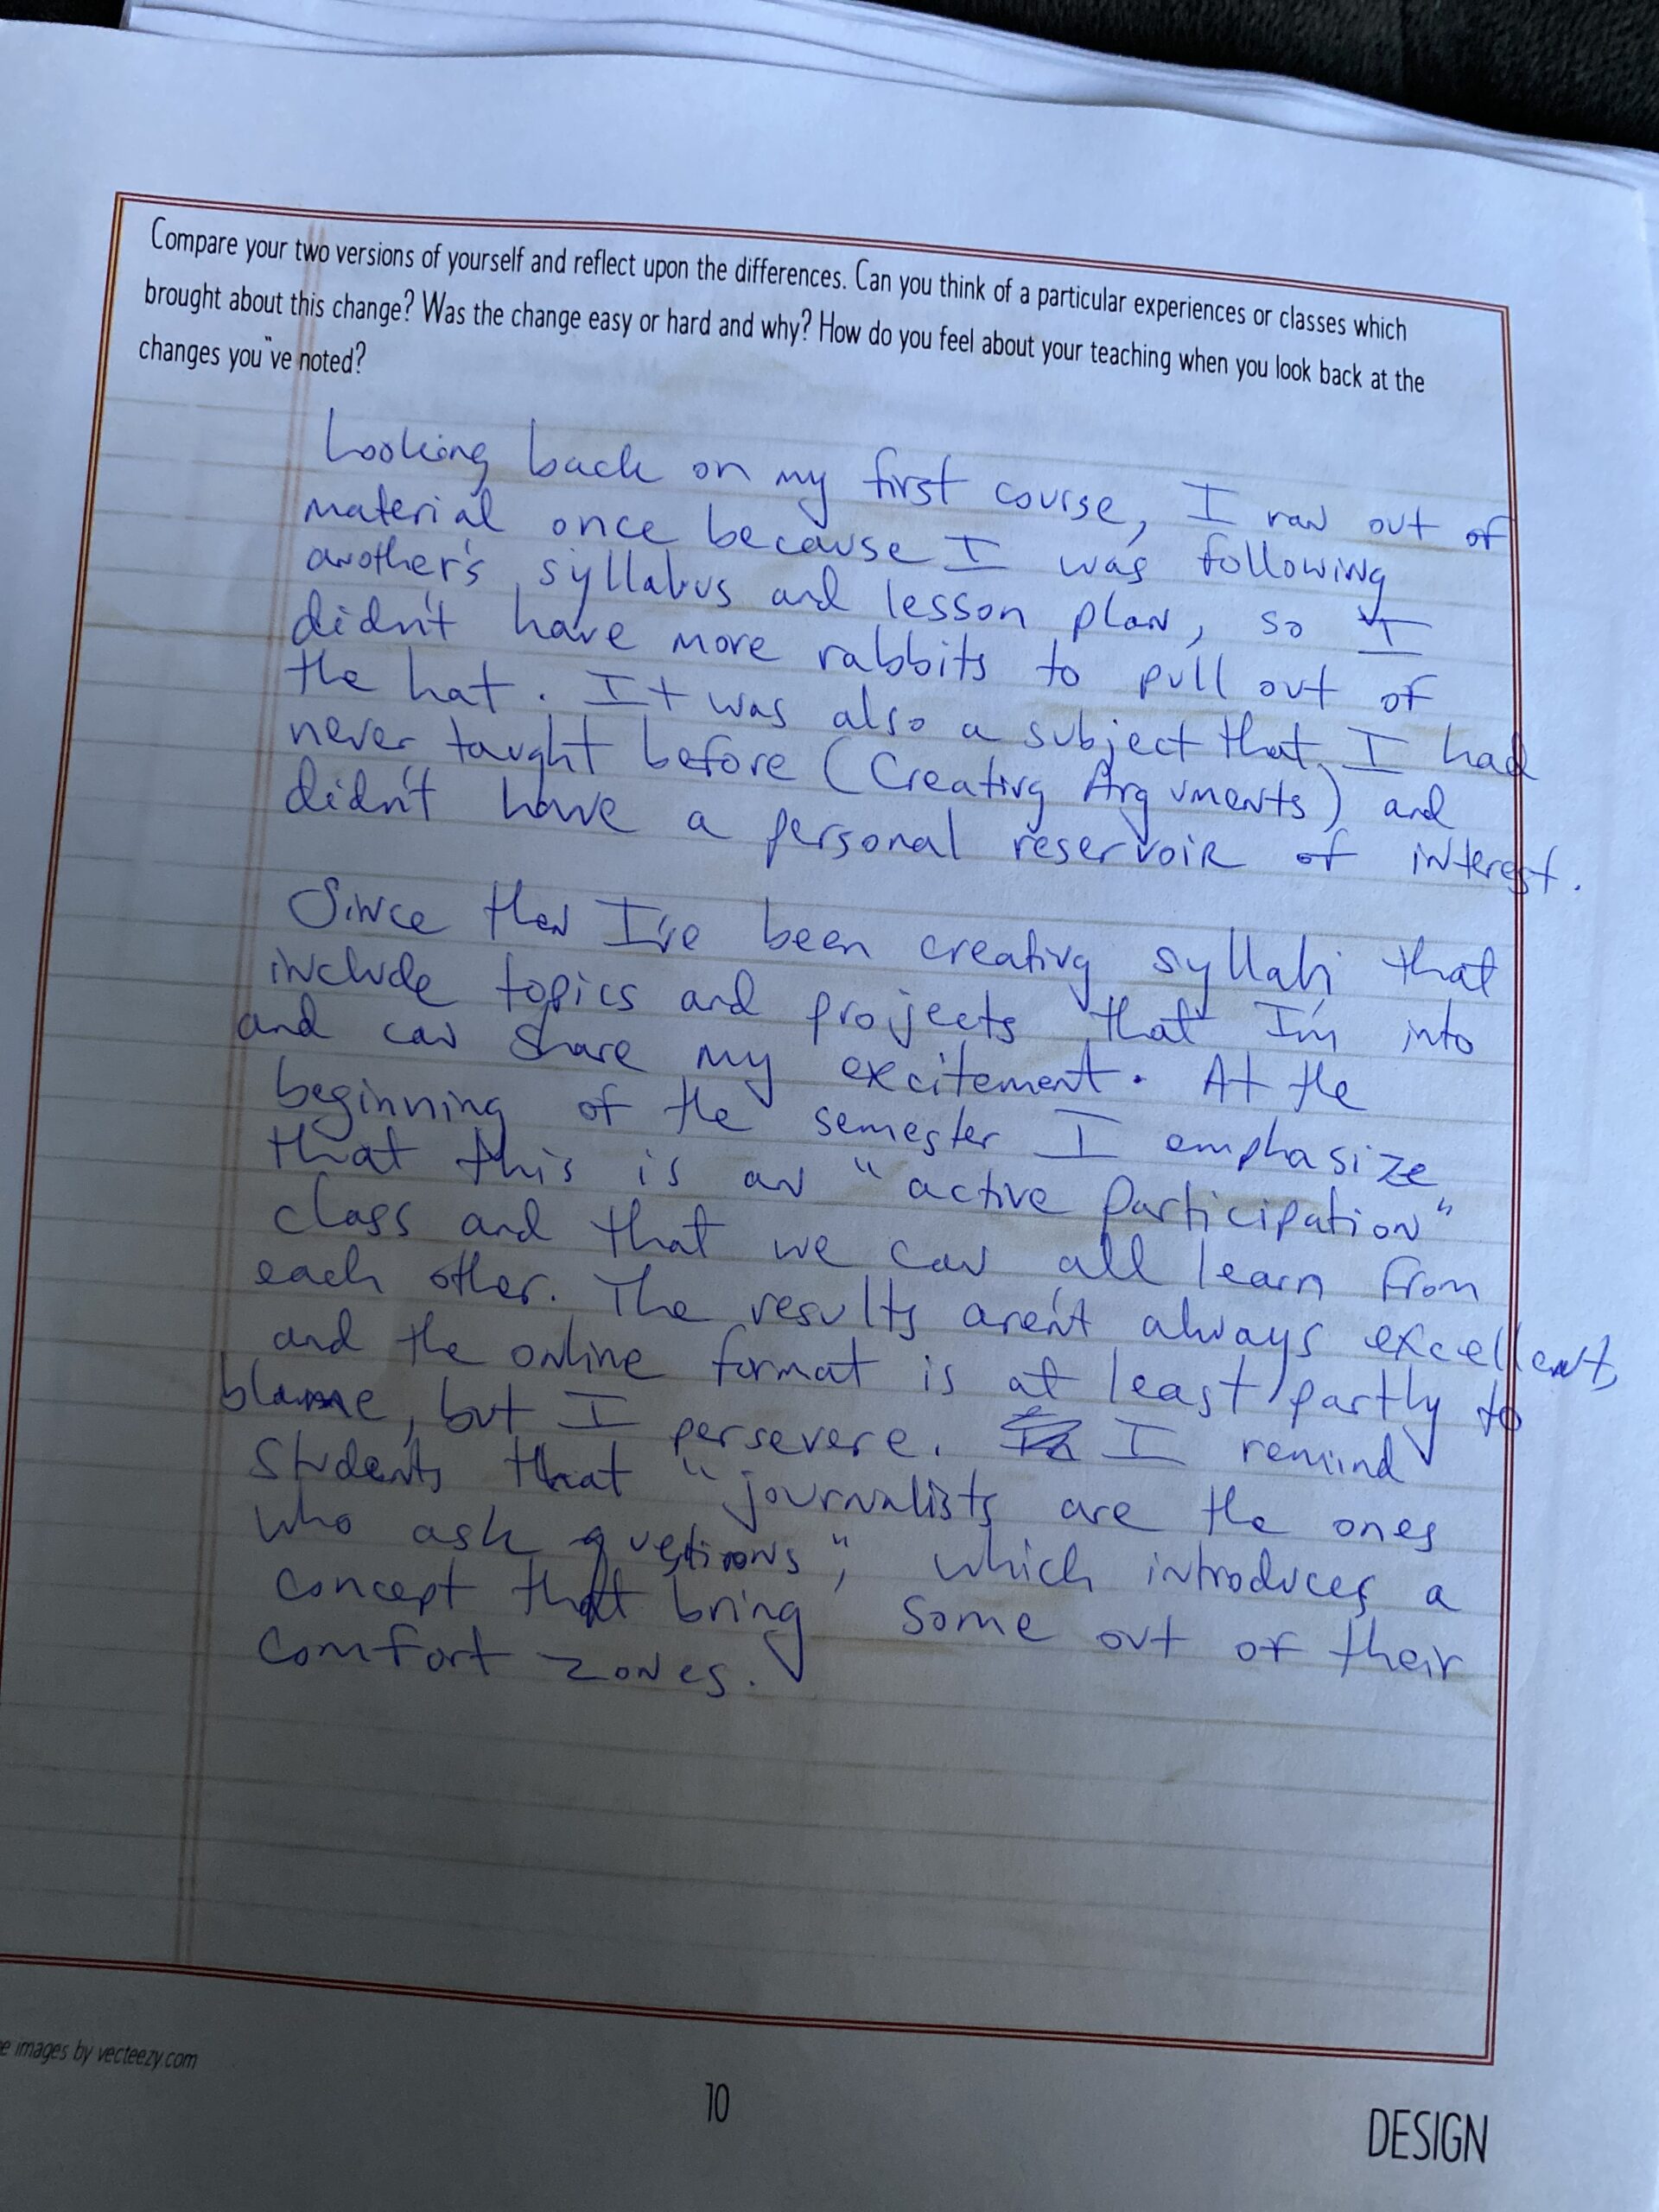 Compare your two versions of yourself and reflect upon the differences. Can you think of a particular experiences or classes which
brought about this change? Was the change easy or hard and why? How do you feel about your teaching when you look back at the
changes you"ve noted?
Looking back on my first course, I ran out of
material once because I was following
another's syllabus and lesson plan, so I
didn't have more rabbits to pull out of
the hat. It was also a subject that I had
never taught before (Creating Arguments) and
didn't have a personal reservoir of interest.
Since then I've been creating syllabi that
include topics and projects that I'm into
and can share my excitement. At the
beginning of the semester I emphasize
that this is an "active participation"
class and that we can all learn from
each other. The results aren't always excellent,
and the online format is at least partly to
blame, but I persevere. I remind
students that "journalists are the ones
who ask questions", which introduces a
concept that bring some out of their
comfort zones.
images by vecteezy.com
10
DESIGN